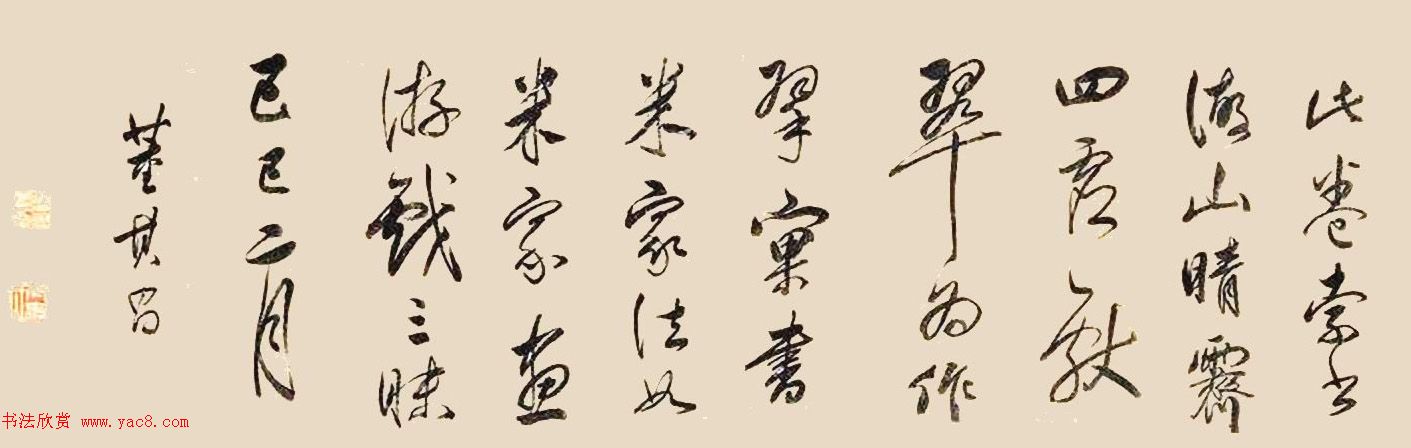 此卷索書
海山晴霽
四虛獻
翠為作
擘窠書
米家法如
米家畫
游戲三昧
己巳二月
董其昌
书法欣赏 www.yac8.com